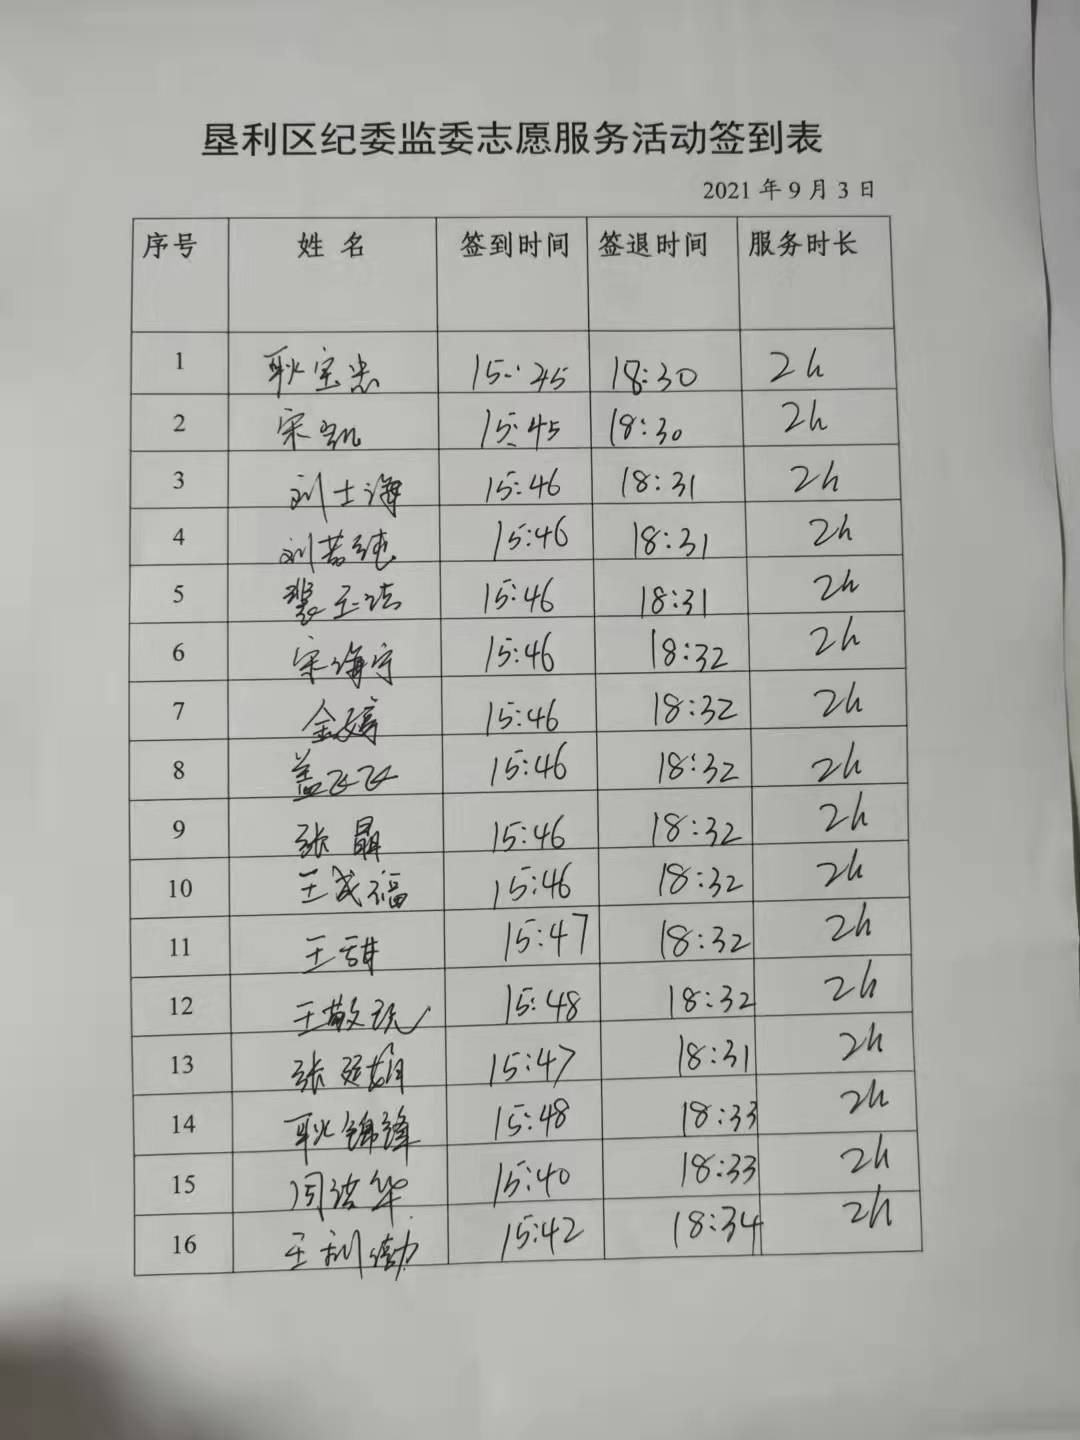 垦利区纪委监委志愿服务活动签到表
2021 年 9 月 3 日
序号 姓 名 签到时间 签退时间 服务时长
1 耿宝忠 15:45 18:30 2h
2 宋凯 15:45 18:30 2h
3 刘士海 15:46 18:31 2h
4 刘若纯 15:46 18:31 2h
5 15:46 18:31 2h
6 宋海宁 15:46 18:32 2h
7 金婷 15:46 18:32 2h
8 盖飞飞 15:46 18:32 2h
9 张晶 15:46 18:32 2h
10 王成福 15:46 18:32 2h
11 王甜 15:47 18:32 2h
12 王敬 15:48 18:32 2h
13 张延娟 15:47 18:31 2h
14 耿锦锋 15:48 18:33 2h
15 周洁华 15:40 18:33 2h
16 王利勤 15:42 18:34 2h